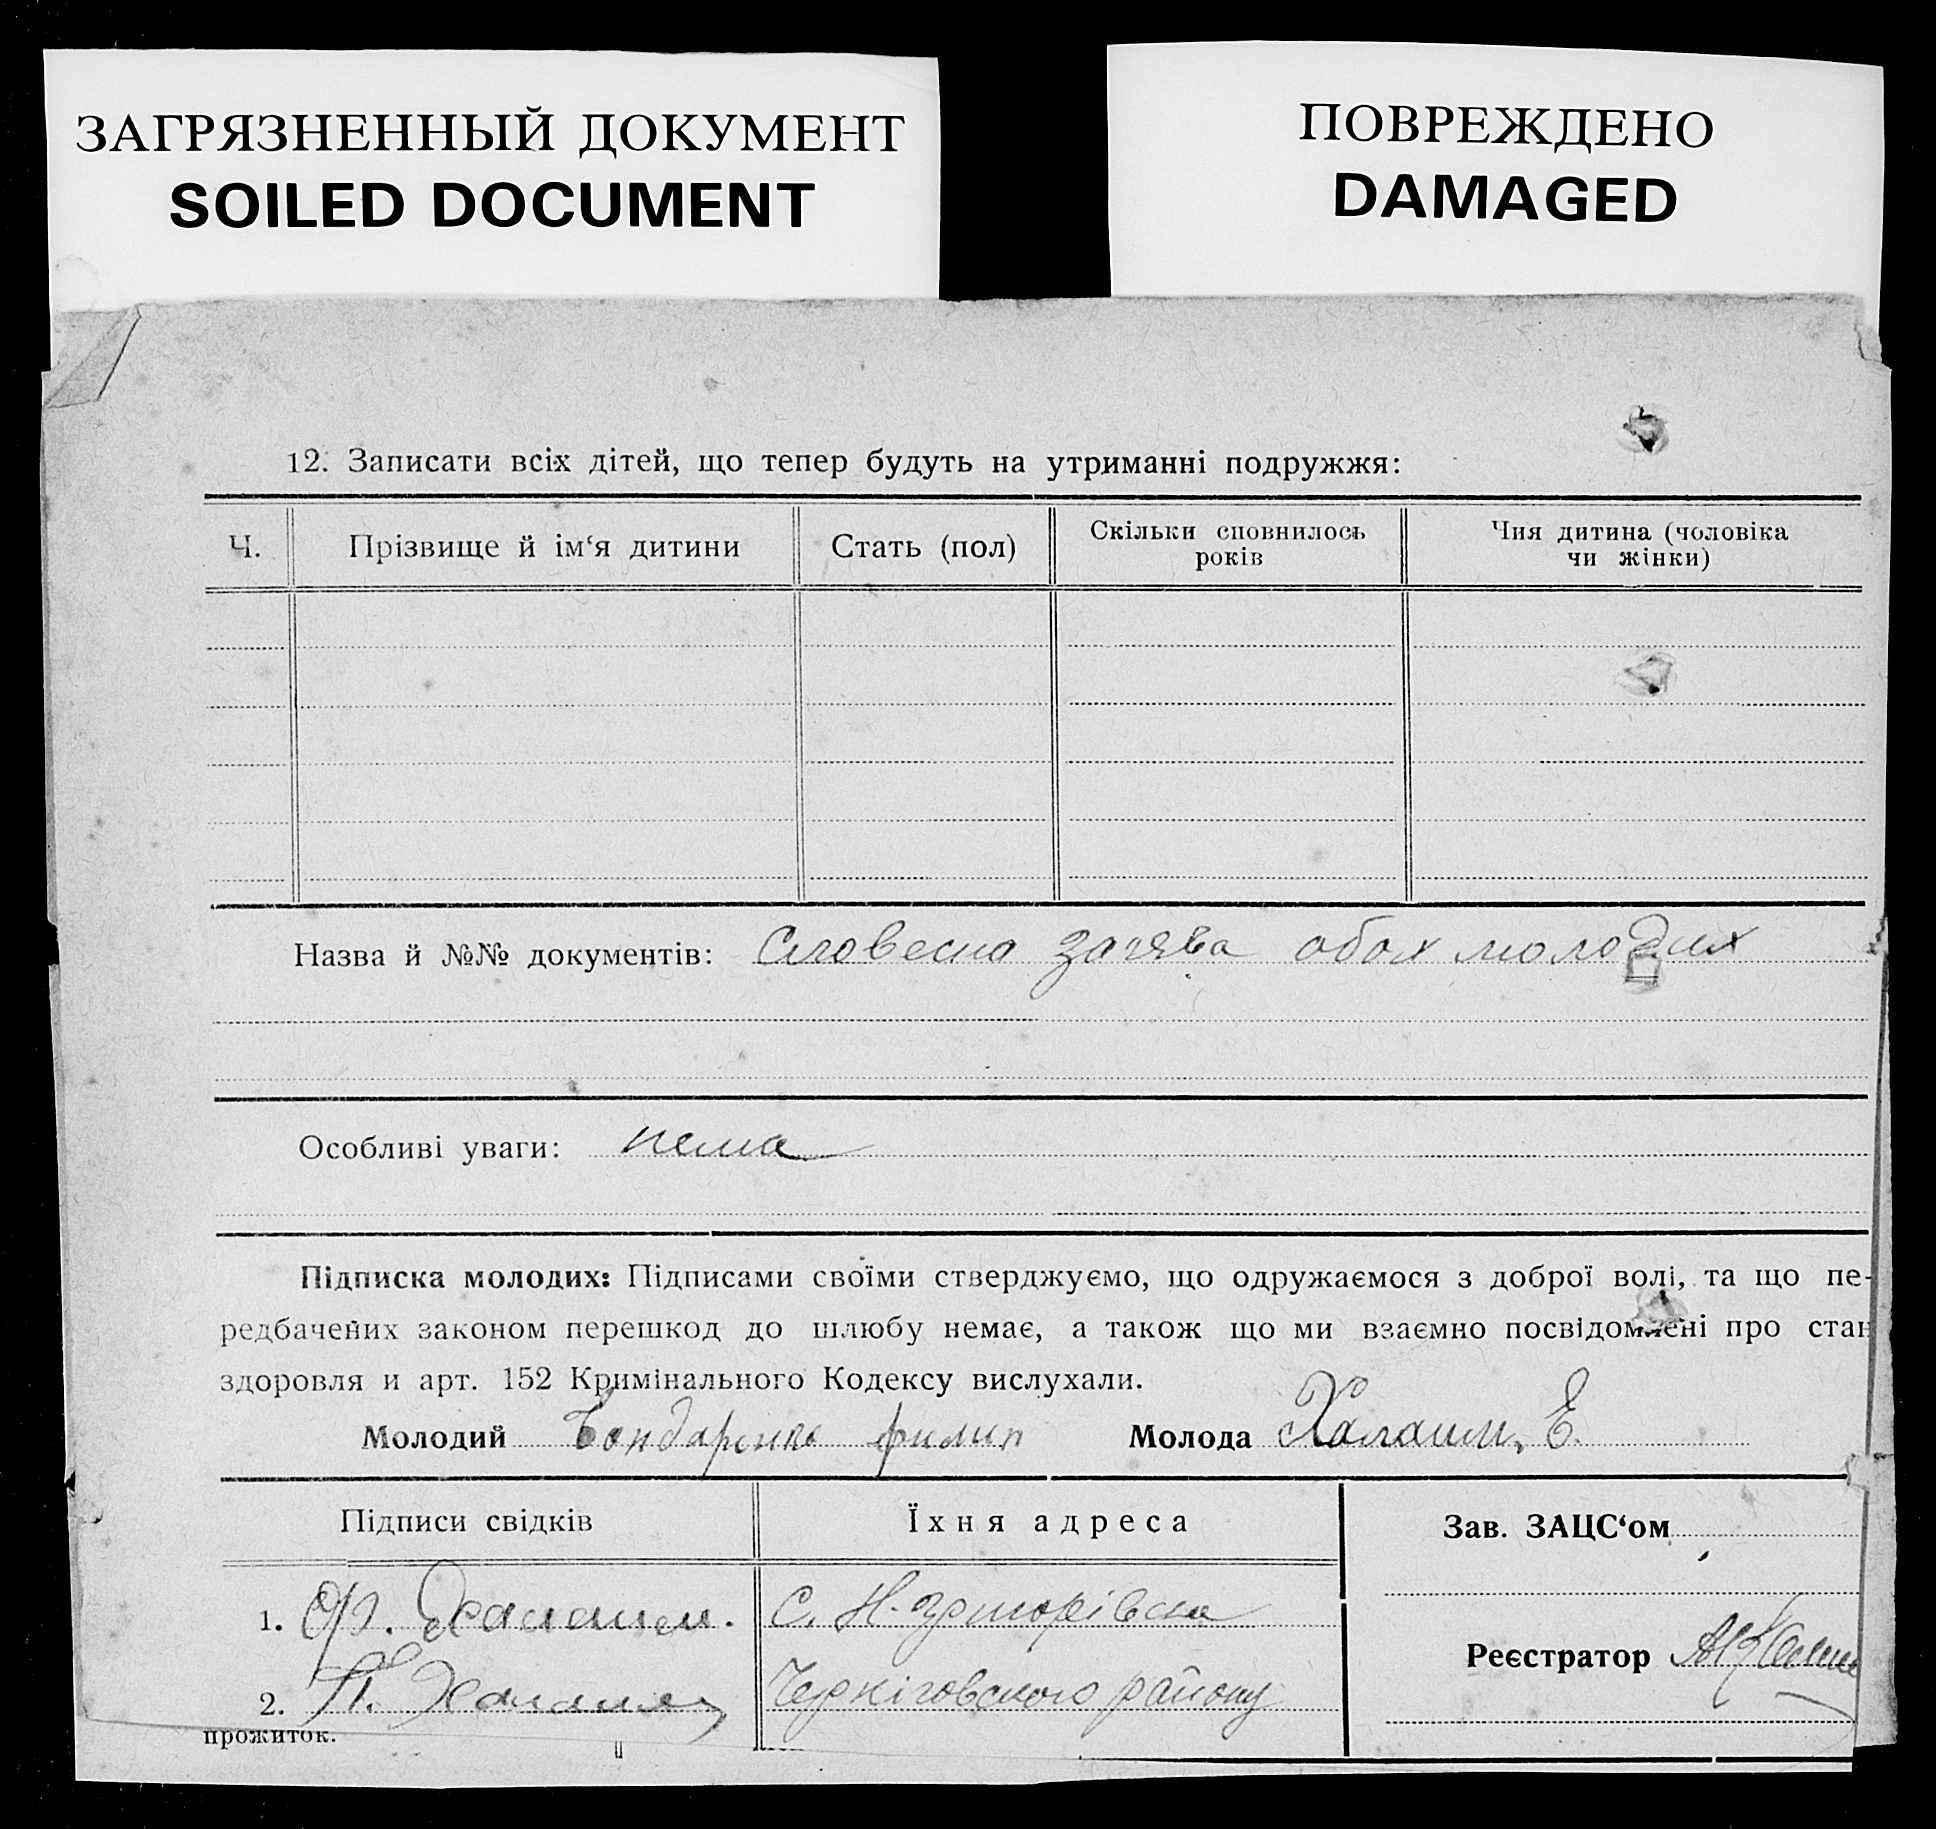 ЗАГРЯЗНЕННЫЙ ДОКУМЕНТ
SOILED DOCUMENT
ПОВРЕЖДЕНО
DAMAGED
12. Записати всіх дітей, що тепер будуть на утриманні подружжя:
Ч. Прізвище й ім‘я дитини Стать (пол) Скільки сповнилось років Чия дитина (чоловіка чи жінки)
Назва й №№ документів: Словесна заява обох молодих
Особливі уваги: нема
Підписка молодих: Підписами своїми стверджуємо, що одружаємося з доброї волі, та що пе-
редбачених законом перешкод до шлюбу немає, а також що ми взаємно посвідомлені про стан
здоровля и арт. 152 Кримінального Кодексу вислухали.
Молодий Бондаренко филип Молода Халаим, Е.
Підписи свідків Їхня адреса Зав. ЗАЦС‘ом
1. Халаим. С. Н.
2. П. Халаим Черніговського району
Реєстратор
прожиток.